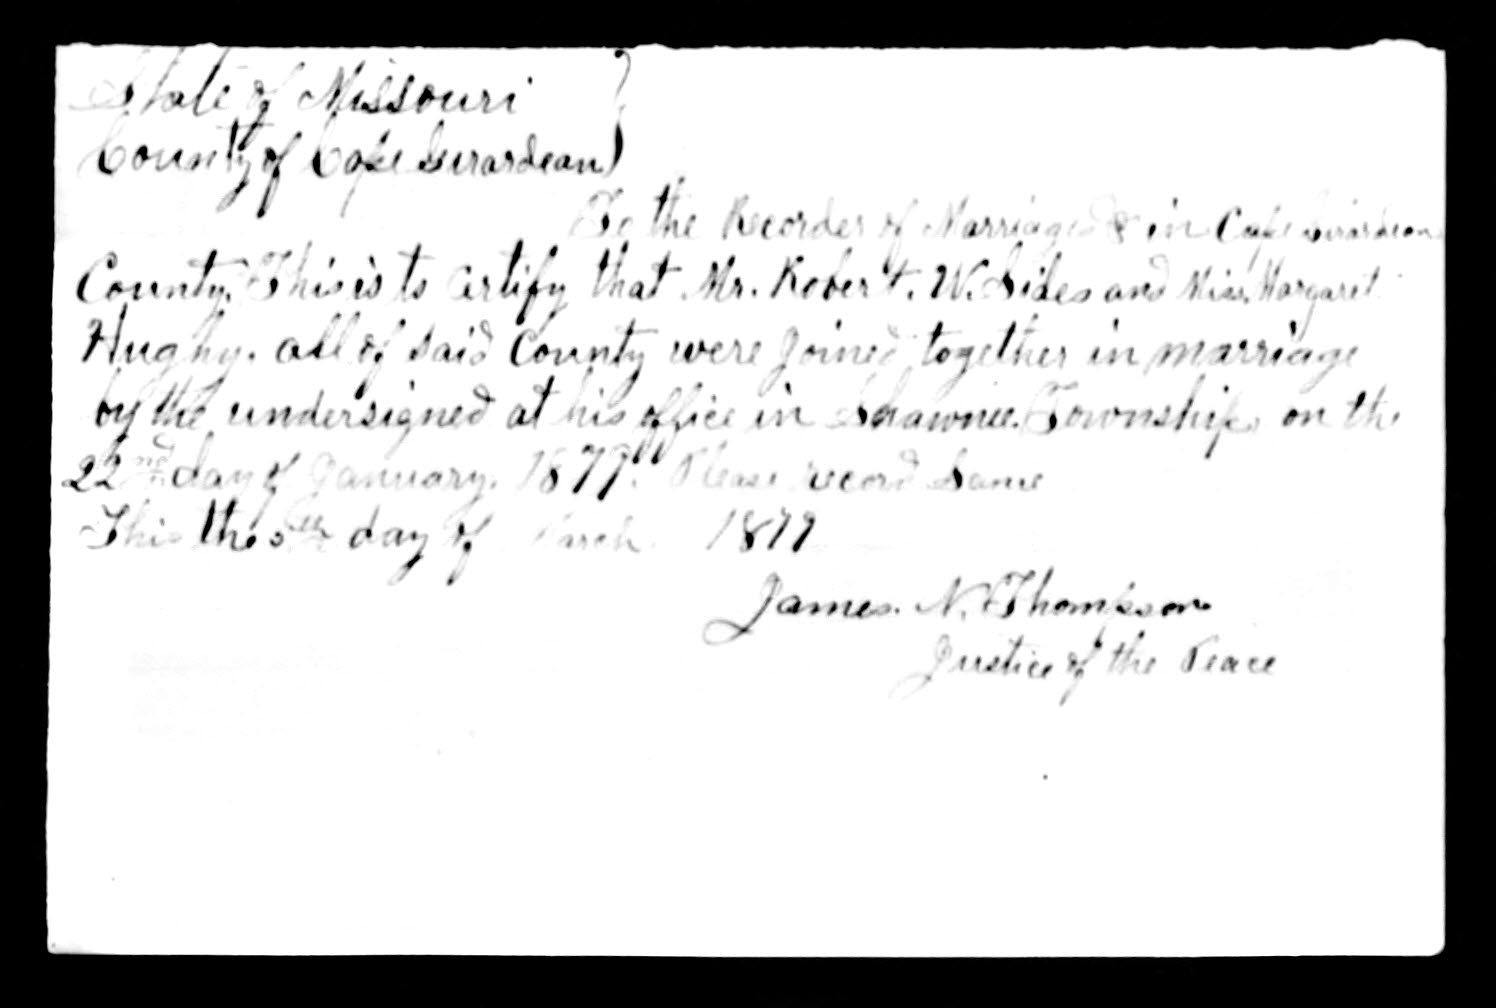 State of Missouri }
County of Cape Girardeau }
To the Recorder of Marriages & in Cape Girardeau
County. This is to Certify that Mr. Robert. W. Sides and Miss Margaret
Hughy. all of said County were Joined together in marriage
by the undersigned at his office in Shawnee. Township on the
22nd day of January. 1879. Please record Same
This the 5th day of March 1879
James. N. Thompson
Justice of the Peace